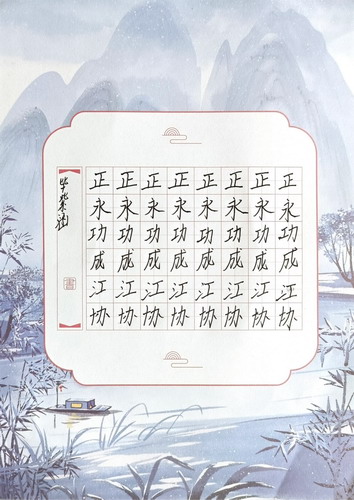 正永功成江协
正永功成江协
正永功成江协
正永功成江协
正永功成江协
正永功成江协
正永功成江协
正永功成江协
書